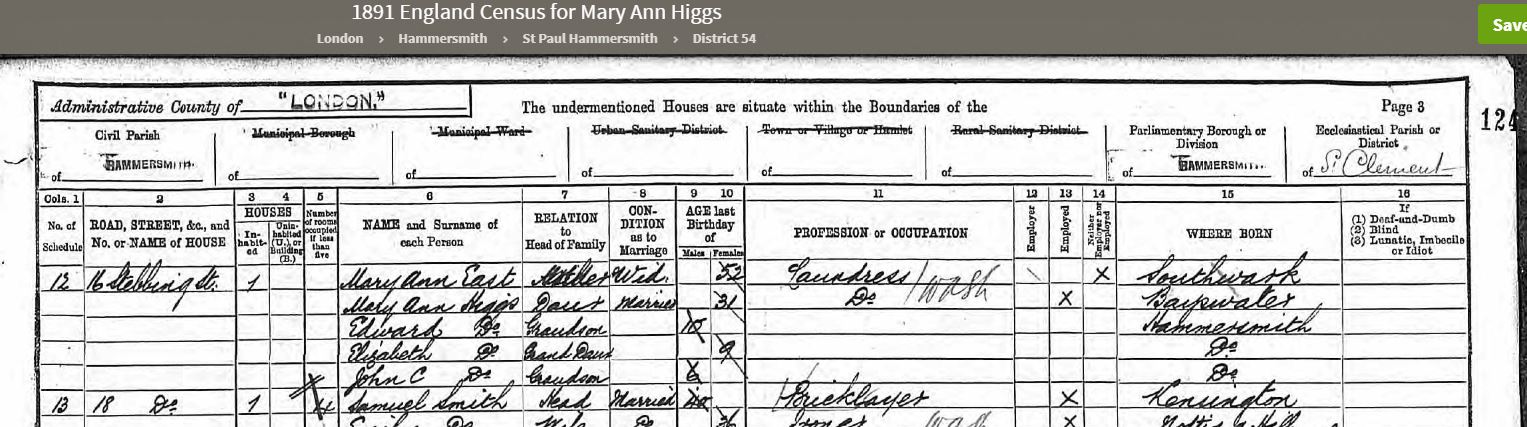 1891 England Census for Mary Ann Higgs
London > Hammersmith > St Paul Hammersmith > District 54
Save
Administrative County of "LONDON." The undermentioned Houses are situate within the Boundaries of the Page 3
124
Civil Parish Municipal Borough Municipal Ward Urban Sanitary District Town or Village or Hamlet Rural Sanitary District Parliamentary Borough or Division Ecclesiastical Parish or District
of HAMMERSMITH of of of of of of HAMMERSMITH of St Clement
Cols. 1 2 3 4 5 6 7 8 9 10 11 12 13 14 15 16
No. of Schedule ROAD, STREET, &c., and No. or NAME of HOUSE HOUSES In-habit-ed Unin-habited (U.), or Building (B.) Number of rooms occupied if less than five NAME and Surname of each Person RELATION to Head of Family CON-DITION as to Marriage AGE last Birthday of Males Females PROFESSION or OCCUPATION Employer Employed Neither Employer nor Employed WHERE BORN If (1) Deaf-and-Dumb (2) Blind (3) Lunatic, Imbecile or Idiot
12 16 Stebbing St. 1 Mary Ann East Mother Wid. 52 Laundress / Wash X Southwark
Mary Ann Higgs Daur Married 31 Do X Bayswater
Edward Do Grandson 10 Hammersmith
Elizabeth Do Grand Daur 9 Do
John C Do Grandson 6 Do
13 18 Do 1 4 Samuel Smith Head Married 40 Bricklayer X Kensington
Do Wife Do 36 Ironer Wash X Notting Hill